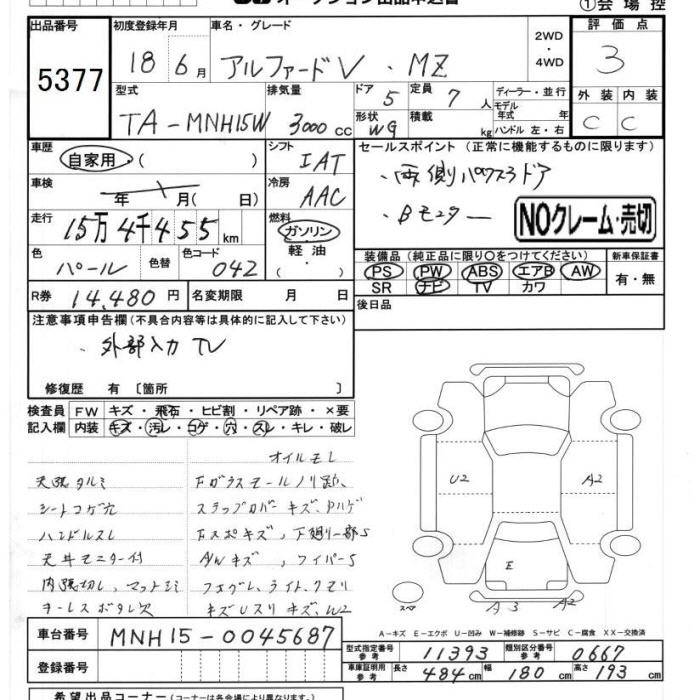 ①会場控
出品番号 初度登録年月 車名・グレード 2WD ・ 4WD 評価点
5377 18年 6月 アルファードV・MZ 3
型式 排気量 ドア 定員 ディーラー・並行 外装 内装
TA-MNH15W 3000cc 5 7人 モデル年式 年式 C C
形状 WG 積載 kg ハンドル 左・右
車歴 自家用・( ) シフト IAT セールスポイント(正常に機能するものに限ります)
・両側パワスラドア
車検 年 月(日) 冷房 AAC ・Bモニター
NOクレーム・売切
走行 15万4千455km 燃料 ガソリン・軽油・( )
色 パール 色替 色コード 042
装備品(純正品に限り○をつけてください) 新車保証書
PS PW ABS エアB AW 有・無
SR ナビ TV カワ
R券 14,480円 名変期限 月 日 後日品
注意事項申告欄(不具合内容等は具体的に記入して下さい)
・外部入力TV
修復歴 有〔箇所 〕
検査員 FW キズ・飛石・ヒビ割・リペア跡・×要
記入欄 内装 キズ・汚レ・コゲ・穴・スレ・キレ・破レ
オイルモレ
天張タルミ
シートコゲ穴
ハンドルスレ
天井モニター付
キーレスボタン欠
U2 A2
E
スペア A3 A2
A-キズ E-エクボ U-凹み W-補修跡 S-サビ C-腐食 XX-交換済
車台番号 MNH15-0045687
型式指定番号 参考 11393 類別区分番号 参考 0667
登録番号 車庫証明用 参考 長さ 484cm 幅 180cm 高さ 193cm
希望出品コーナー(コーナーは各会場により異なります